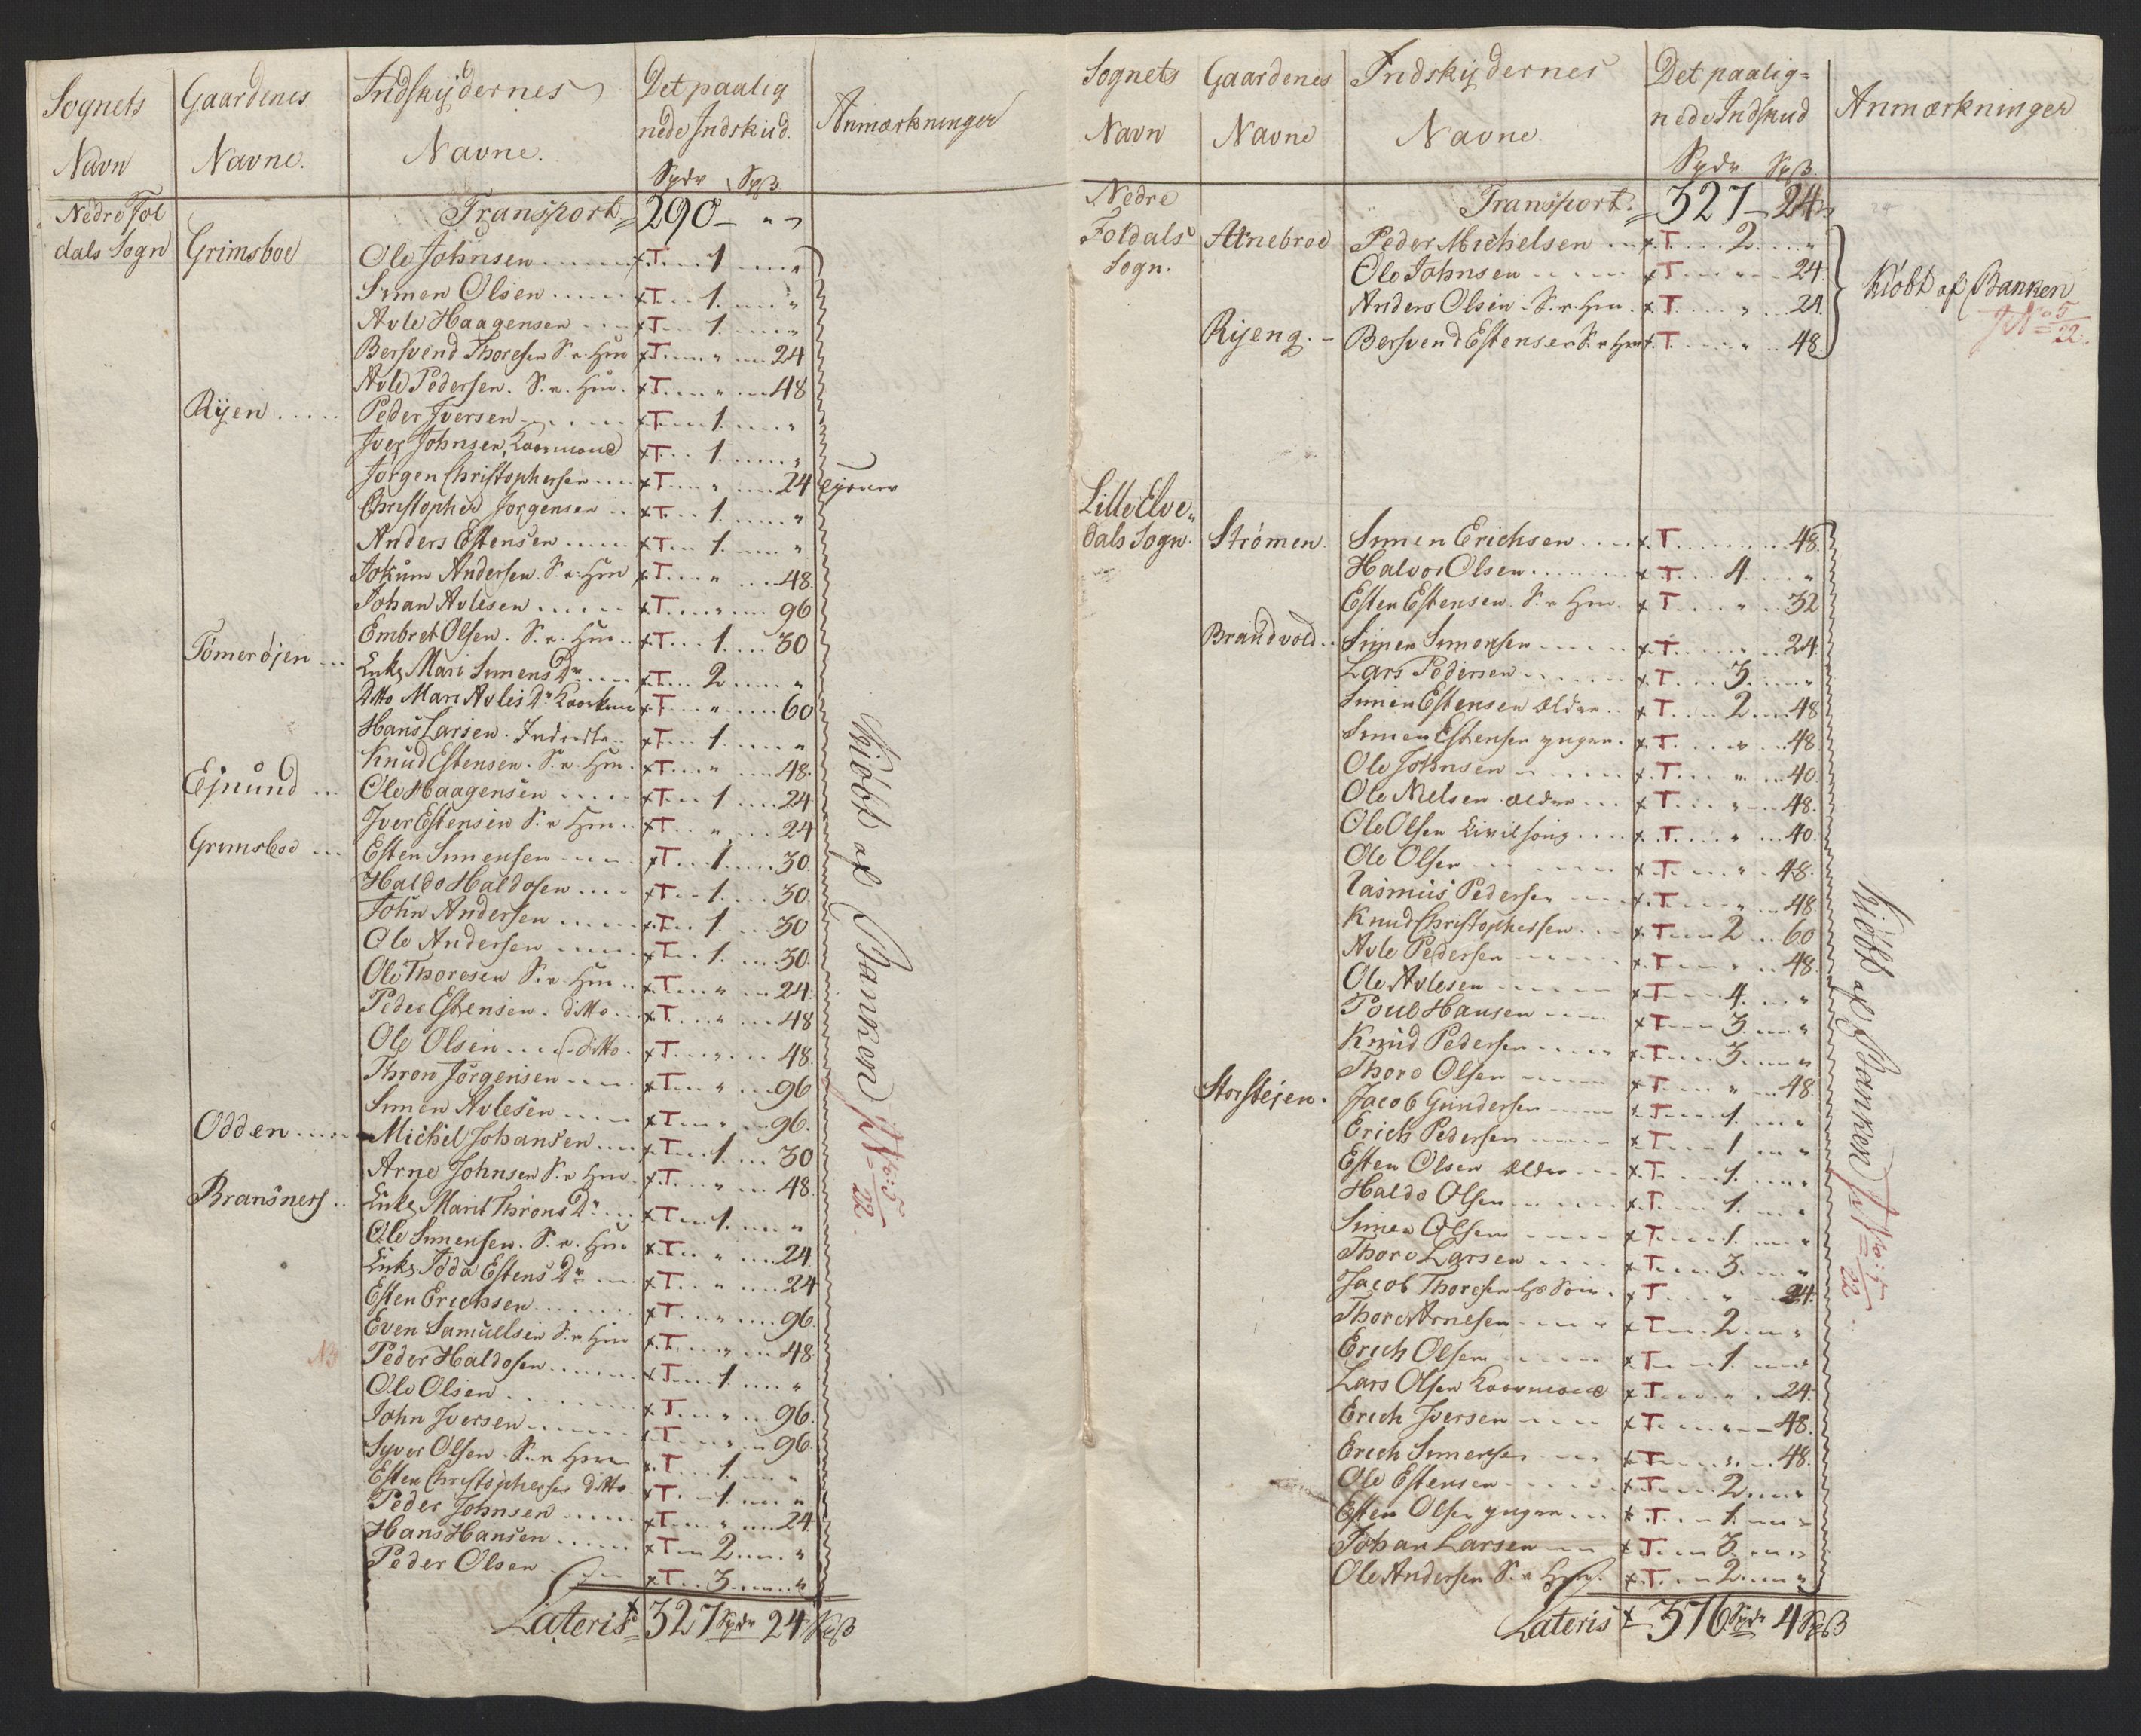 Sognets Navn | Gaardenes Navne. | Indskydernes Navne. | Det paalignede Indskud. Spdr Spß | Anmærkninger
Nedre Fol Transport 290 — " "
dals Sogn Grimsboe Ole Johnsen ...... x T ... 1 .... "
Simen Olsen ...... x T ... 1 .... "
Avle Haagensen .... x T ... 1 .... "
Bersvend Thoresen S. v. Hm x T .... " .... 24
Avle Pedersen. S. v. Hm. x T .... " .... 48
Rÿen ..... Peder Iversen ...... x T ... 1 .... "
Iver Johnsen, Kaarmand x T ... 1 .... "
Jørgen Christophersen .... x T .... " .... 24
Christopher Jørgensen .. x T ... 1 .... "
Anders Estensen ...... x T ... 1 .... "
Jokum Andersen. S. v. Hm x T .... " .... 48
Johan Avlesen ...... x T .... " .... 96
Embret Olsen. S. v. Hm.. x T ... 1 .... 30
Tømerøjen ... Enke Mari Simens Dr .... x T ... 2 .... "
Ditto Mari Avles Dr x T .... " .... 60
Hans Larsen. x T ... 1 .... "
Knud Estensen. S. v. Hm. x T .... " .... 48.
Ejnund ... Ole Haagensen ..... x T ... 1 .... 24
Iver Estensen S. v. Hm.. x T .... " .... 24
Grimsboe ... Esten Simensen ..... x T ... 1 .... 30.
Haldo Haldosen .... x T ... 1 .... 30.
John Andersen ...... x T ... 1 .... 30
Ole Andersen ..... x T ... 1 .... 30.
Ole Thoresen S. v. Hm.. x T .... " .... 24.
Peder Estensen. ditto ... x T .... " .... 48
Ole Olsen .... ditto. x T .... " .... 48.
Thron Jørgensen .... x T .... " .... 96
Simen Avlesen ..... x T .... " .... 96.
Odden ..... Michel Johansen .... x T ... 1 .... 30
Arne Johnsen S. v. Hm. x T .... " .... 48.
Bransness .. Enke Marit Throns Dr ... x T ... 1 .... "
Ole Simensen. S. v. Hm x T .... " .... 24
Enke Todda Estens Dr ... x T .... " .... 24
Esten Erichsen ....... x T .... " .... 96.
Even Samuelsen S. v. Hm x T .... " .... 48.
NB Peder Haldosen ...... x T ... 1 .... "
Ole Olsen ........ x T .... " .... 96.
John Iversen ...... x T .... " .... 96.
Syver Olsen. S. v. Hm x T ... 1 .... "
Esten Christophersen ditto x T ... 1 .... "
Peder Johnsen ...... x T .... " .... 24.
Hans Hansen ...... x T ... 2 .... "
Peder Olsen ... x T ... 3 .... "
Kiøbt af Banken
No: 5/22.
Lateris 327 Spdr 24 Spß
Sognets Navn | Gaardenes Navne | Indskydernes Navne | Det paalignede Indskud Spdr Spß | Anmærkninger
Nedre Transport. 327 — 24
Foldals Atnebroe Peder Michelsen ... x T ... 2 .... "
Sogn. Ole Johnsen ..... x T .... " .... 24.
Anders Olsen. S. v. Hm. x T .... " .... 24.
Rÿeng. - Bersvend Estensen S. v. Hm x T .... " .... 48.
Kiøbt af Banken
No 5/22.
Lille Elve-
dals Sogn. Strømen. Simen Erichsen .... x T ........ 48.
Halvor Olsen ....... x T ... 4 .... "
Esten Estensen. S. v. Hm. x T .... " .... 32
Brandvold .. Simen Simensen ..... x T .... " .... 24.
Lars Pedersen ...... x T ... 3 .... "
Simen Estensen Ældre .. x T ... 2 .... 48
Simen Estensen yngre. x T .... " .... 48.
Ole Johnsen ...... x T .... " .... 40.
Ole Nielsen ældre ... x T .... " .... 48.
Ole Olsen .... x T .... " .... 40.
Ole Olsen ..... x T .... " .... 48.
Rasmus Pedersen .... x T .... " .... 48.
Knud Christophersen .. x T ... 2 ... 60
Avle Pedersen ..... x T .... " .... 48.
Ole Avlesen ...... x T ... 4 .... "
Poul Hansen .... x T ... 3 .... "
Knud Pedersen ..... x T ... 3 .... "
Thore Olsen ..... x T .... " .... 48.
Storstejen. Jacob Gundersen .... x T ... 1 .... "
Erich Pedersen ..... x T ... 1 .... "
Esten Olsen Ældre ... x T ... 1 .... "
Haldo Olsen ..... x T ... 1 .... "
Simen Olsen ..... x T ... 1 .... "
Thore Larsen .... x T ... 3 .... "
Jacob Thoresen x T .... " .... 24.
Thore Arnesen .... x T ... 2 .... "
Erich Olsen ..... x T ... 1 .... "
Lars Olsen Kaarmand x T .... " .... 24.
Erich Iversen .... x T .... " .... 48.
Erich Simensen ... x T .... " .... 48.
Ole Estensen ..... x T ... 2 .... "
Esten Olsen yngre ... x T ... 1 .... "
Johan Larsen ... x T ... 3 .... "
Ole Andersen. S. v. Hm. x T ... 2 .... "
Kiøbt af Banken
No: 5/22.
Lateris 376 Spdr 4 Spß